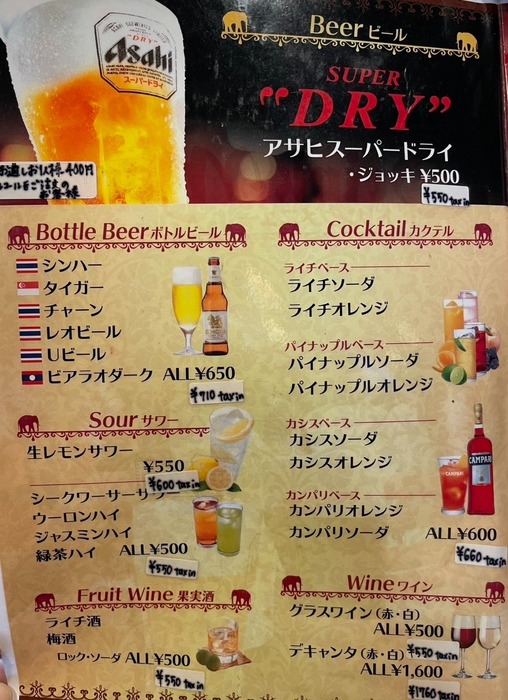 Beer ビール
Asahi
"DRY"
スーパードライ
SUPER
“DRY”
アサヒスーパードライ
・ジョッキ ¥500
¥550 tax in
お通しお1人様 400円
Bottle Beer ボトルビール
シンハー
タイガー
チャーン
レオビール
Uビール
ビアラオダーク ALL¥650
¥710 tax in
Sour サワー
生レモンサワー
¥550
¥600 tax in
シークワーサーサワー
ウーロンハイ
ジャスミンハイ
緑茶ハイ ALL¥500
¥550 tax in
Fruit Wine 果実酒
ライチ酒
梅酒
ロック・ソーダ ALL¥500
¥550 tax in
Cocktail カクテル
ライチベース
ライチソーダ
ライチオレンジ
パイナップルベース
パイナップルソーダ
パイナップルオレンジ
カシスベース
カシスソーダ
カシスオレンジ
カンパリベース
カンパリオレンジ
カンパリソーダ ALL¥600
CAMPARI
CAMPARI
¥660 tax in
Wine ワイン
グラスワイン (赤・白)
ALL¥500
¥550 tax in
デキャンタ (赤・白)
ALL¥1,600
¥1760 tax in